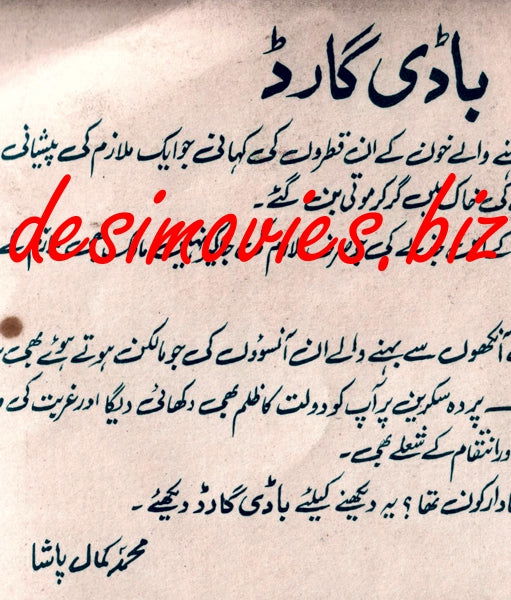 باڈی گارڈ
والے خون کے ان قطروں کی کہانی جو ایک ملازم کی پیشانی
کی خاک میں گر کر موتی بن گئے۔
desimovies.biz
آنکھوں سے بہنے والے ان آنسوؤں کی جو مالکن ہوتے ہوئے بھی
پردہ سکرین پر آپ کو دولت کا ظلم بھی دکھائی دیگا اور غربت کی
انتقام کے شعلے بھی۔
کون تھا؟ یہ دیکھنے کیلئے باڈی گارڈ دیکھئے۔
محمد کمال پاشا